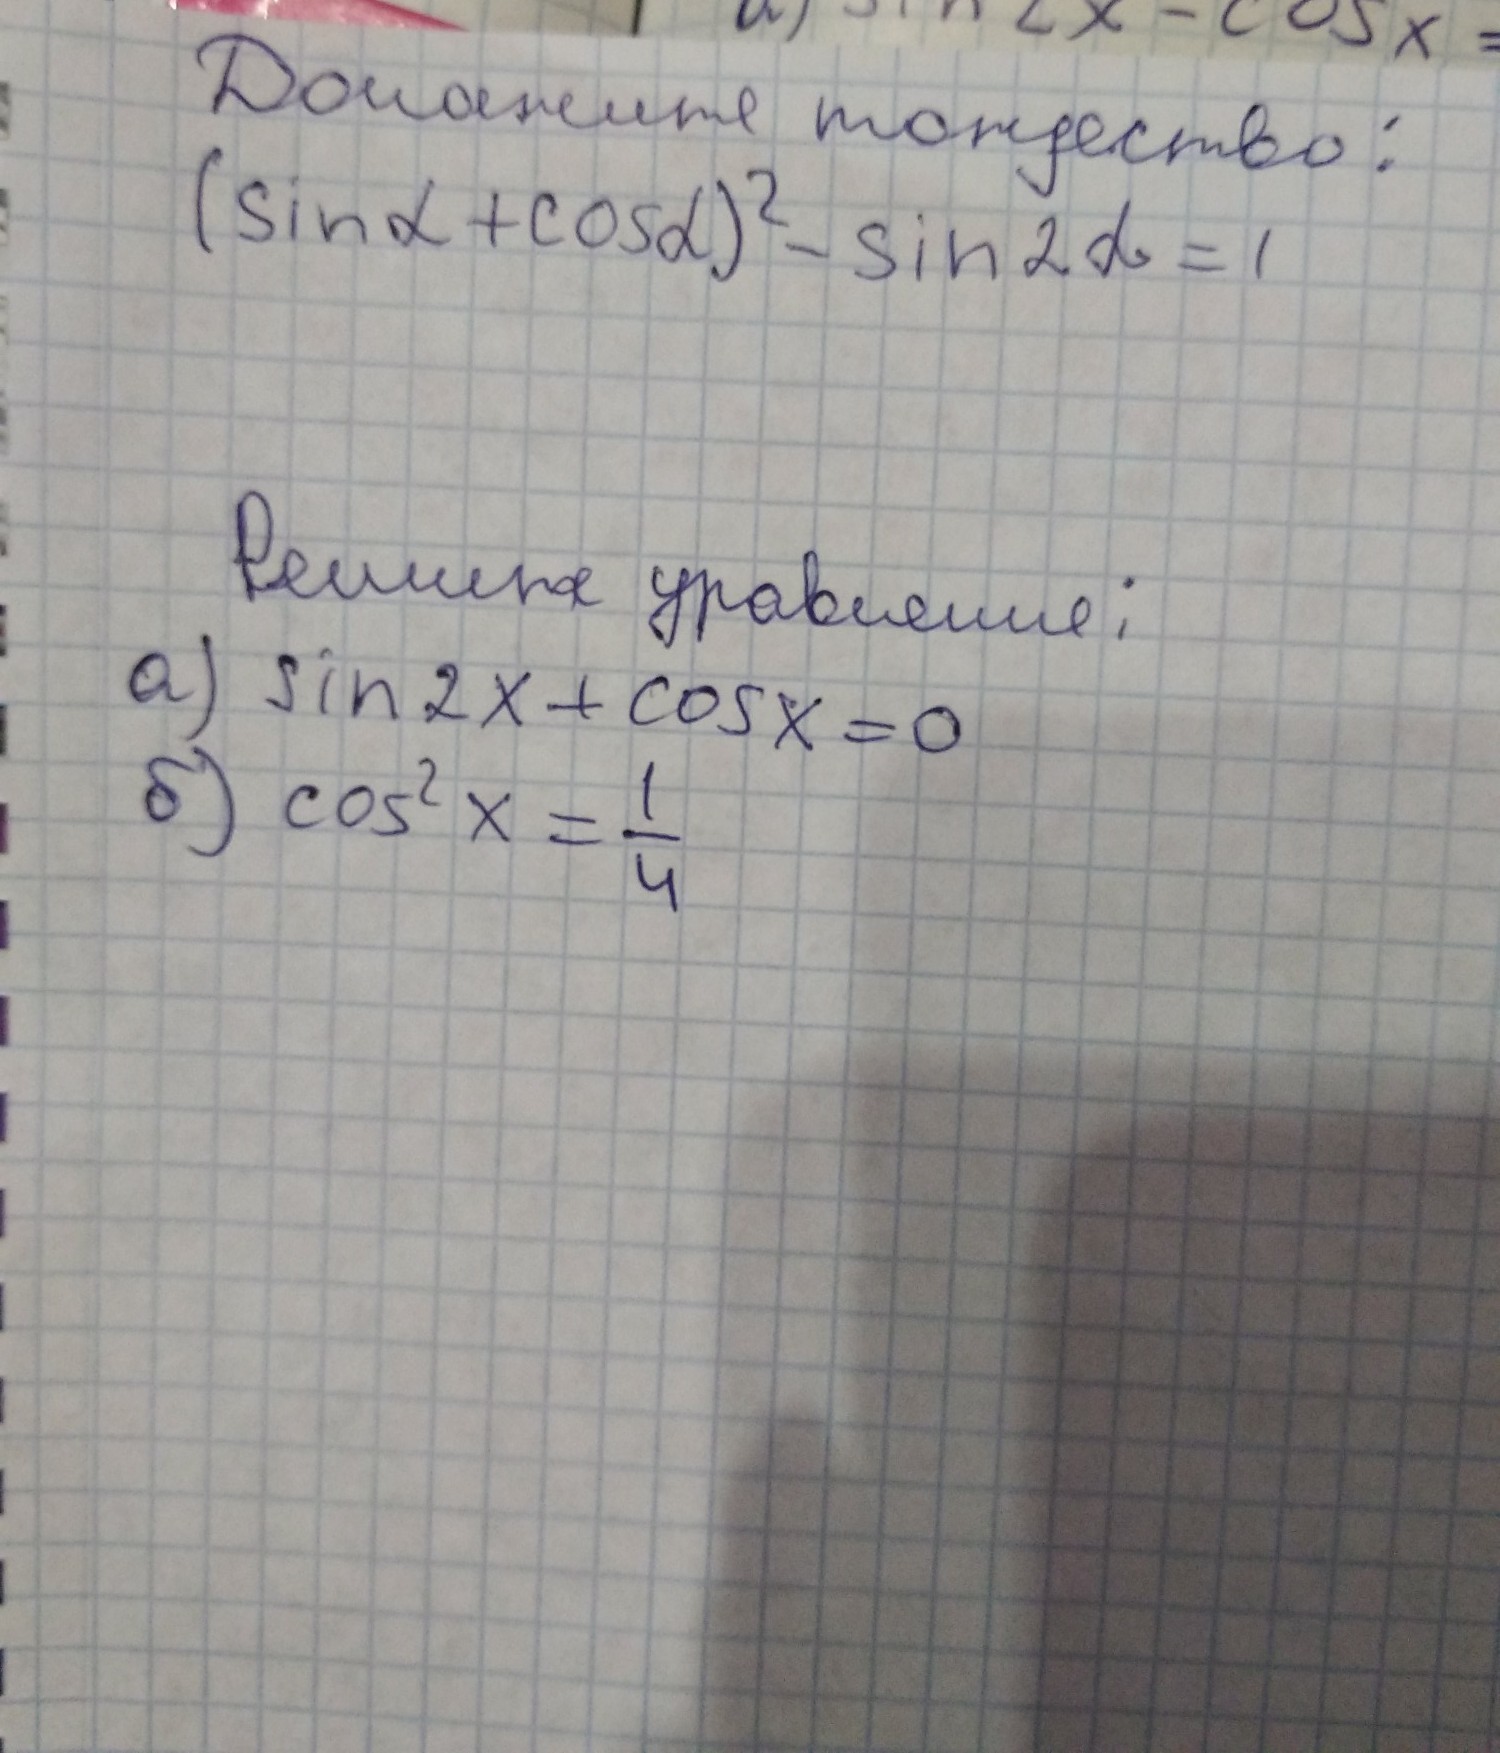 а) sin 2x - cos x =
Докажите тождество:
(sinα + cosα)² - sin 2α = 1
Решите уравнение:
а) sin 2x + cos x = 0
б) cos² x = 1/4